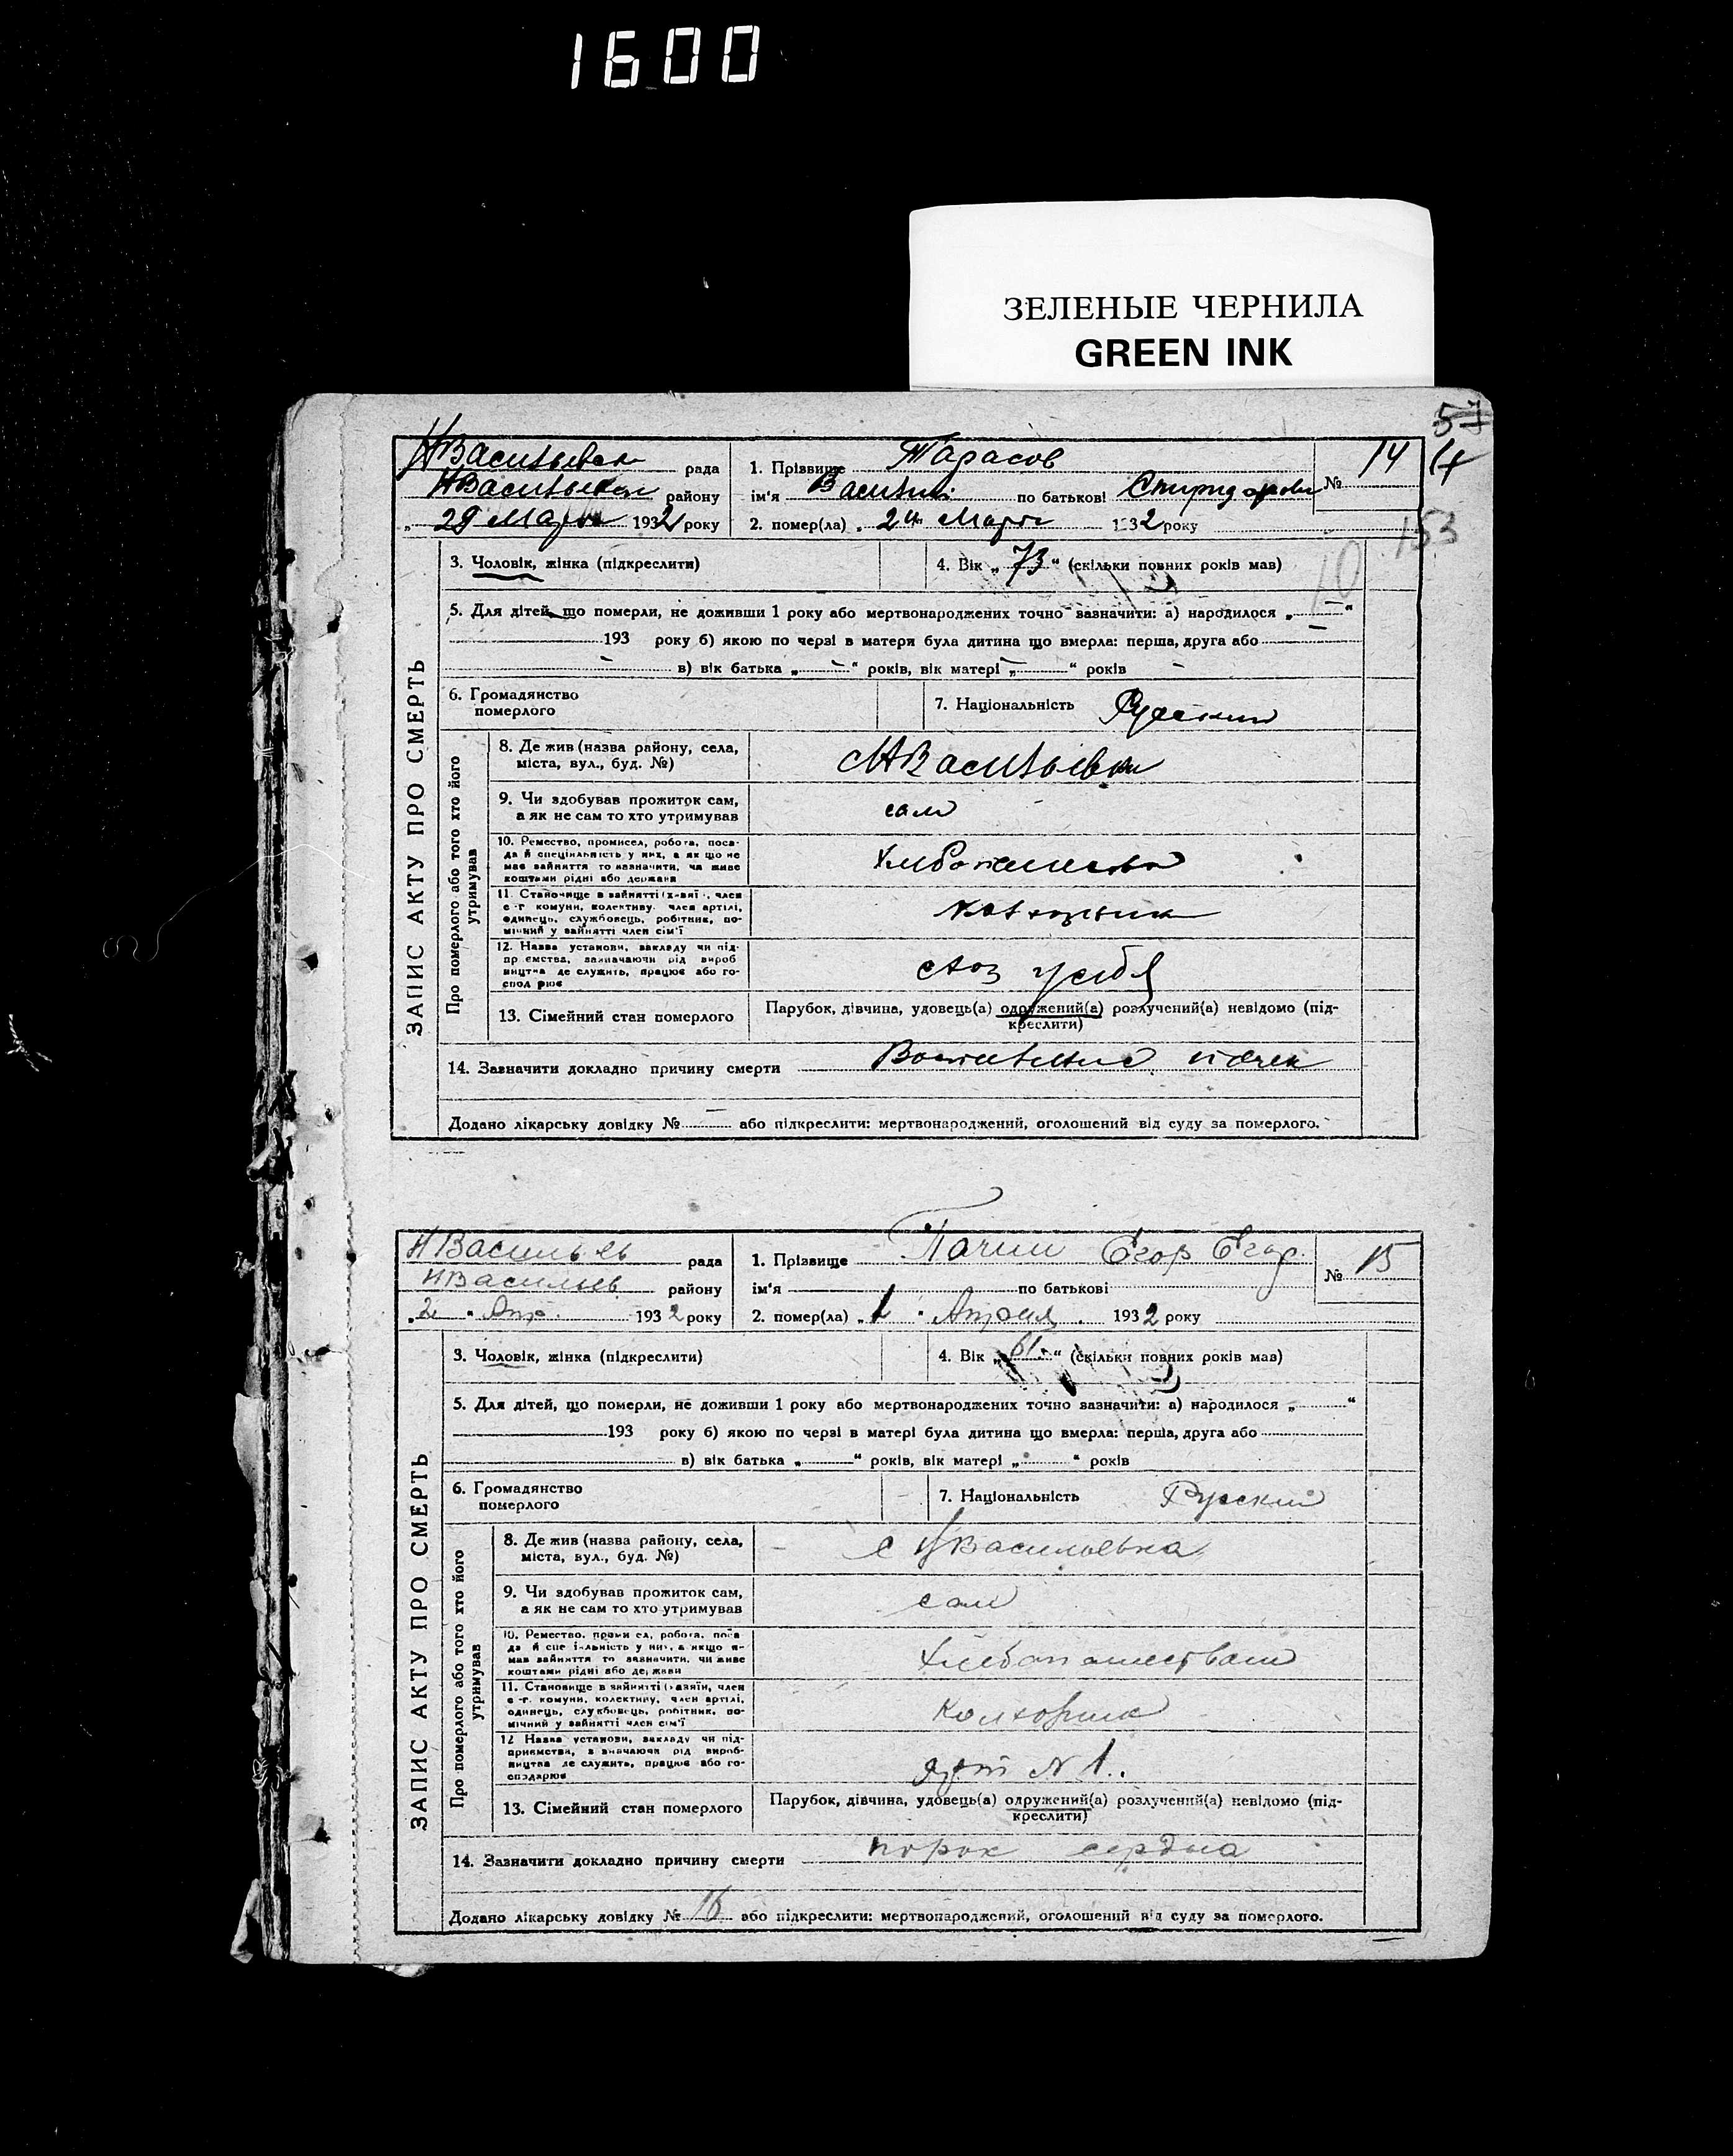 1600
ЗЕЛЕНЫЕ ЧЕРНИЛА
GREEN INK
153
ЗАПИС АКТУ ПРО СМЕРТЬ
НВасильевск рада
НВасильевск району
„ 29 Марта 1932 року
1. Прізвище Тарасов
ім'я Василий по батькові Спиридонови
№ 14
2. помер(ла) „ 24 Марта 1932 року
3. Чоловік, жінка (підкреслити)
4. Вік „ 73 “ (скільки повних років мав)
10
5. Для дітей, що померли, не доживши 1 року або мертвонароджених точно зазначити: а) народилося „ – “
193 року б) якою по черзі в матери була дитина що вмерла: перша, друга або
в) вік батька „ – “ років, вік матері „ – “ років –
6. Громадянство
померлого
7. Національність Русский
Про померлого або того хто його
утримував
8. Де жив (назва району, села,
міста, вул., буд. №)
НВасильевка
9. Чи здобував прожиток сам,
а як не сам то хто утримував
сам
10. Ремество, промисел, робота, поса-
да й спеціяльність у них, а як що не
має зайняття то зазначити, чи живе
коштами рідні або держави
Хлебопашество
11. Становище в зайнятті (х-яї , член
с-г комуни, колективу, член артілі,
одинець, службовець, робітник, по-
мічний у зайнятті член сім'ї
Колхозник
12. Назва установи, закладу чи під-
пр ємства, зазначаючи рід вироб
ництва де служить, працює або го-
спод рює
13. Сімейний стан померлого
Парубок, дівчина, удовець(а) одружений(а) розлучений(а) невідомо (під-
креслити)
14. Зазначити докладно причину смерти Воспаление почек
Додано лікарську довідку № – або підкреслити: мертвонароджений, оголошений від суду за померлого.
ЗАПИС АКТУ ПРО СМЕРТЬ
НВасильев рада
НВасильев району
„ 2 “ Апр. 1932 року
1. Прізвище Пачин Егор Егор.
ім'я по батькові
№ 15
2. помер(ла) „ 1 “ Апреля . 1932 року
3. Чоловік, жінка (підкреслити)
4. Вік „ 61. “ (скільки повних років мав)
5. Для дітей, що померли, не доживши 1 року або мертвонароджених точно зазначити: а) народилося „ “
193 року б) якою по черзі в матері була дитина що вмерла: перша, друга або
в) вік батька „ “ років, вік матері „ “ років
6. Громадянство
померлого
7. Національність Русский
Про померлого або того хто його
утримував
8. Де жив (назва району, села,
міста, вул., буд. №)
с НВасильевка
9. Чи здобував прожиток сам,
а як не сам то хто утримував
сам
10. Ремество, промисел, робота, поса
да й спеціяльність у них, а якщо н-
має зайняття то зазначити, чи живе
коштами рідні або держави
Хлебопашеством
11. Становище в зайнятті (хазяїн, член
с-г. комуни, колективу, член артілі,
одинець, службовець, робітник, по-
мічний у зайнятті член сім'ї
Колхозник
12 Назва установи, закладу чи під-
приємства, зазначаючи рід вироб-
ництва де служить, працює або го-
сподарює
N 1.
13. Сімейний стан померлого
Парубок, дівчина, удовець(а) одружений(а) розлучений(а) невідомо (під-
креслити)
14. Зазначити докладно причину смерти порок сердца
Додано лікарську довідку № 16 або підкреслити: мертвонароджений, оголошений від суду за померлого.